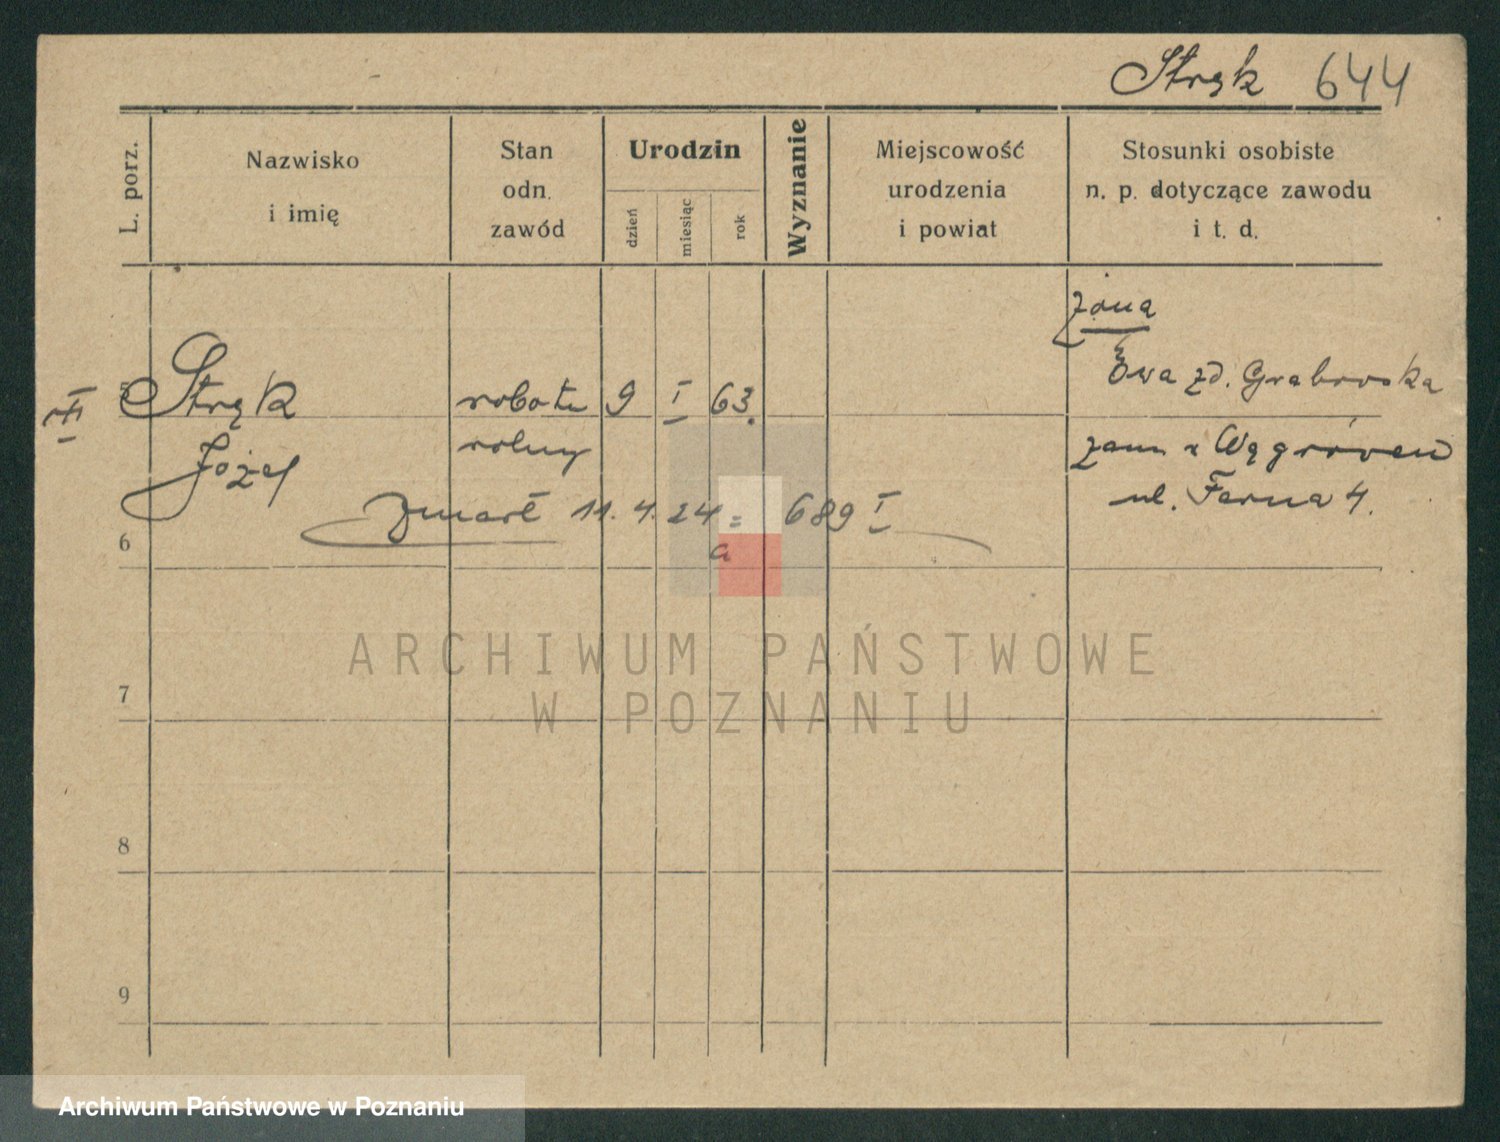 Stręk 644
L. porz.
Nazwisko
i imię
Stan
odn.
zawód
Urodzin
dzień
miesiąc
rok
Wyznanie
Miejscowość
urodzenia
i powiat
Stosunki osobiste
n. p. dotyczące zawodu
i t. d.
żona
Ewa zd. Grabowska
5 Stręk robotn 9 I 63.
rolny
Józef
zam w Wągrówcu
ul. Farna 4.
Zmarł 11. 4. 24 = 689 I
a
6
7
8
9
ARCHIWUM PAŃSTWOWE
W POZNANIU
Archiwum Państwowe w Poznaniu